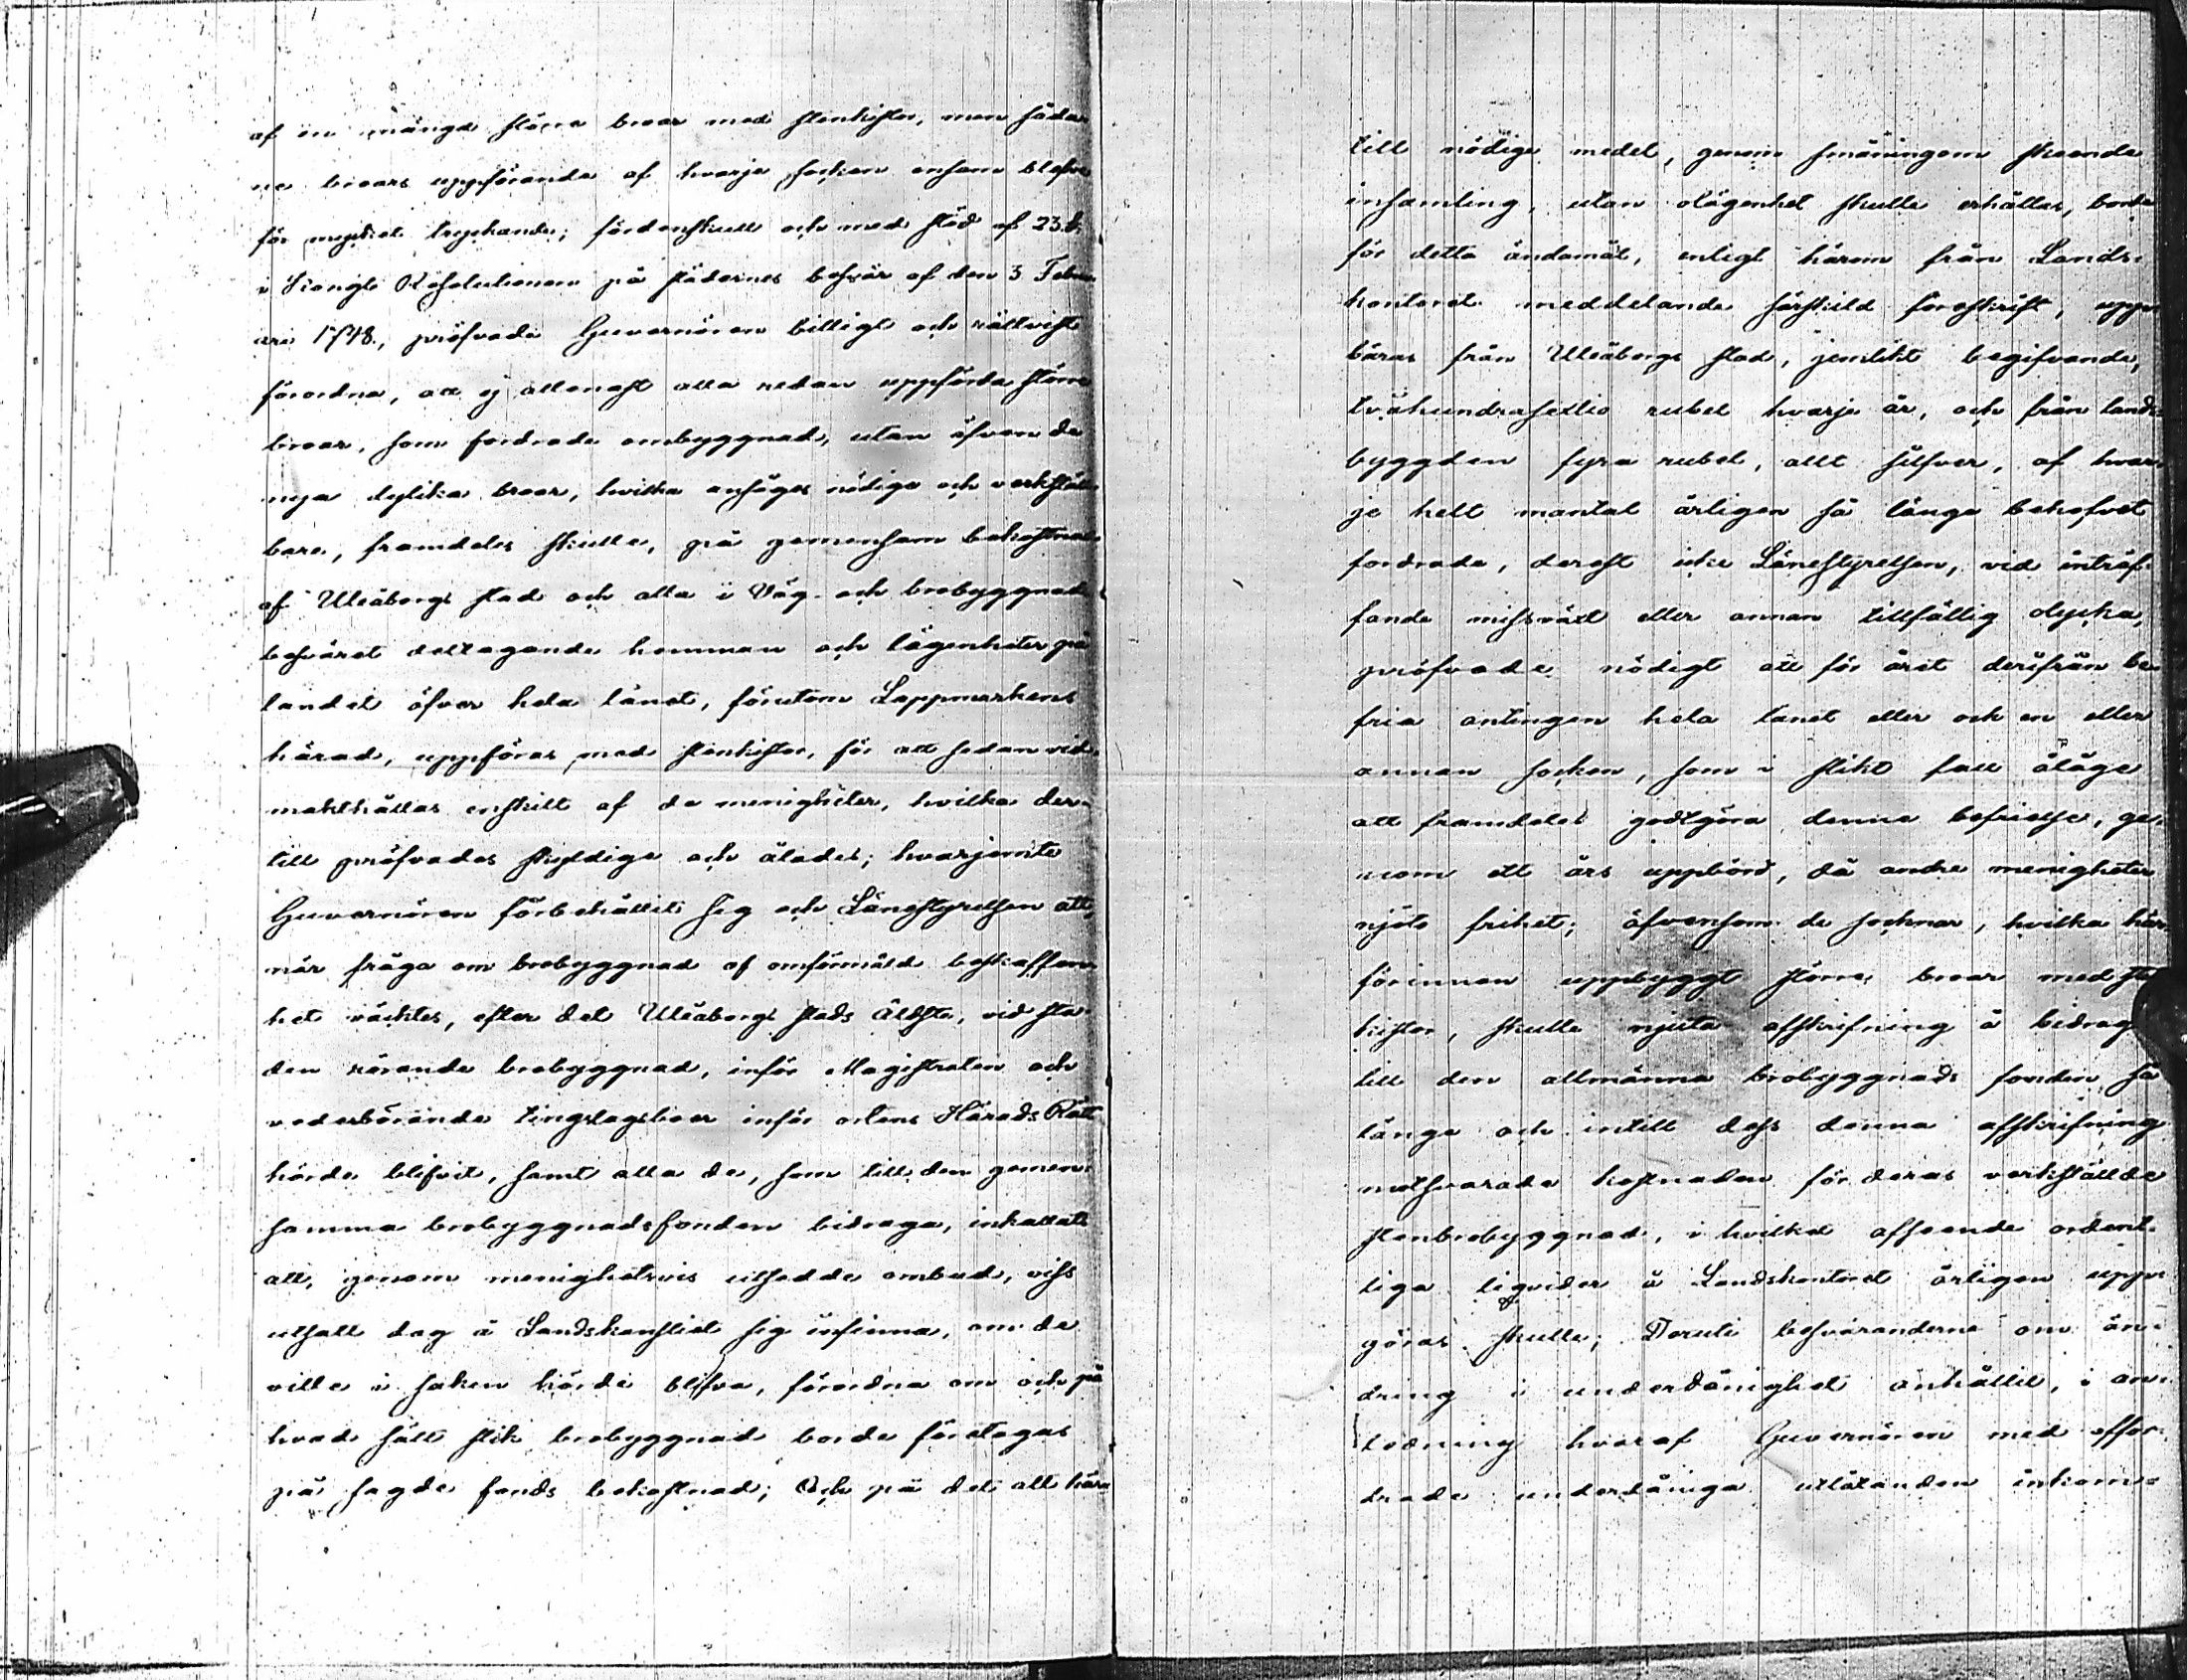 af en mängd större broar med stenkistor, men såda-
ne broars uppförande af hvarje socken ensam blefve
för mycket tryckande; fördenskull och med stöd af 23 §.
i Kongl. Resolutionen på städernes besvär af den 3 Febru-
arii 1748., pröfvade Guvernören billigt och rättvist
förordna, att ej allenast alla redan uppförda större
broar, som fordrade ombyggnad, utan äfven de
nya dylika broar, hvilka anságes nödige och verkställ-
bare, framdeles skulle, på gemensam bekostnad
af Uleåborgs stad och alla i Väg- och brobyggnads
besväret deltagande hemman och lägenheter på
landet öfver hela länet, förutom Lappmarkens
härad, uppföras med stenkistor, för att sedan vid-
makthållas enskilt af de menigheter, hvilka der-
till pröfvades skyldige och ålades; hvarjemte
Guvernören förbehållit sig och Länestyrelsen att,
när fråga om brobyggnad af omförmäld beskaffen-
het väcktes, efter det Uleåborgs stads äldste, vid sta-
den rörande brobyggnad, inför Magistraten och
vederbörande tingslagsboer inför ortens Härads Rätt
hörde blifvit, samt alla de, som till den gemen-
samma brobyggnadsfonden bidraga, inkallats
att, genom menighetsvis utsedde ombud, viss
utsatt dag å Landskansliet sig infinna, om de
ville i saken hörde blifva, förordna om och på
hvad sätt slik brobyggnad borde företagas
på sagde fonds bekostnad; Och på det att här-
till nödige medel, genom småningom skeende
insamling, utan olägenhet skulle erhållas, borde
för detta ändamål, enligt härom från Lands-
kontoret meddelande särskild föreskrift, upp-
bäras från Uleåborgs stad, jemlikt begifvande,
tvåhundrasextio rubel hvarje år, och från lands-
bygden fyra rubel, allt silfver, af hvar-
je helt mantal årligen så länge behofvet
fordrade, derest icke Länestyrelsen, vid inträf-
fande missväxt eller annan tillfällig olycka,
pröfvade nödigt att för året derifrån be-
fria antingen hela länet eller och en eller
annan socken, som i slikt fall ålåge
att framdeles godtgöra denna befrielse, ge-
nom ett års uppbörd, då andre menigheter
njöto frihet; äfvensom de socknar, hvilka här-
förinnan uppbyggt större broar med sten-
kistor, skulle njuta afskrifning å bidrag
till den allmänna brobyggnads fonden, så
länge och intill dess denna afskrifning
motsvarade kostnaden för deras verkställde
stenbrobyggnad, i hvilket afseende ordent-
liga liqvider å Landskontoret årligen upp-
göras skulle; Deruti besväranderne om än-
dring i underdånighet anhållit, i an-
ledning hvaraf Guvernören med affor-
drade underdåniga utlåtanden inkom-